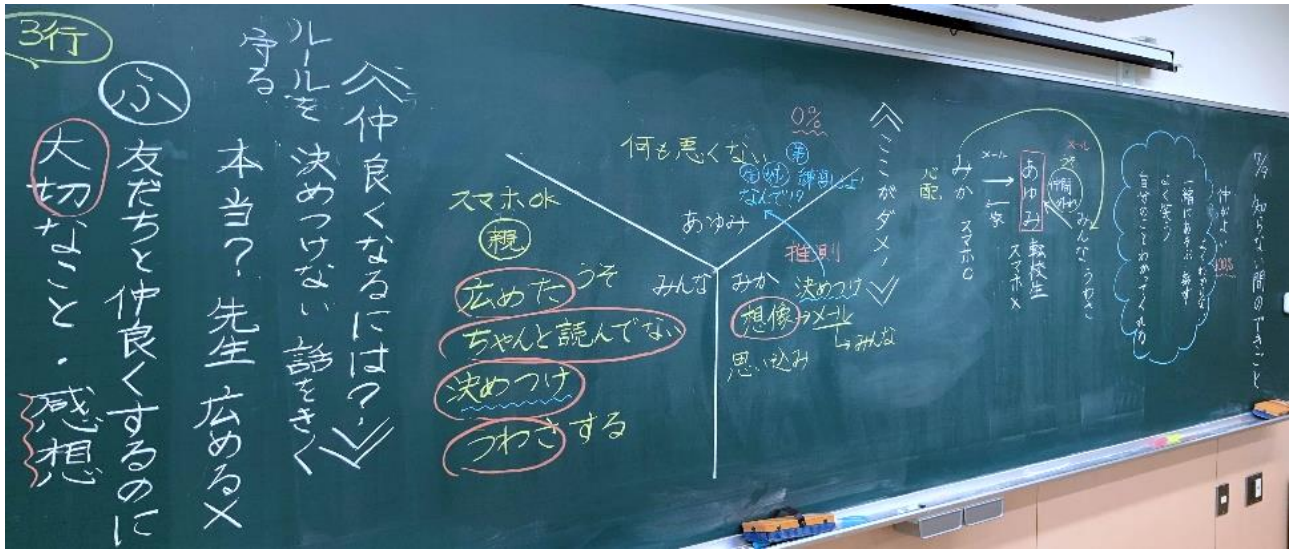 7/9 知らない間のできごと
仲がよい 100%
一緒にあそぶ
よく笑う
自分のことわかってくれる
メール
うそ
仲間外れ
みんな うわさ
あゆみ 転校生
スマホ×
メール
みか スマホ○
心配
≪ここがダメ!≫
0%
何も悪くない
なんで!?
あゆみ
推測
みか
決めつけ
想像→メール
↳みんな
思い込み
みんな
スマホok
親
広めた うそ
ちゃんと読んでない
決めつけ
うわさする
≪仲良くなるには?≫
ルールを守る
決めつけない 話をきく
本当? 先生 広める×
ふ 友だちと仲良くするのに
大切なこと・感想
3行